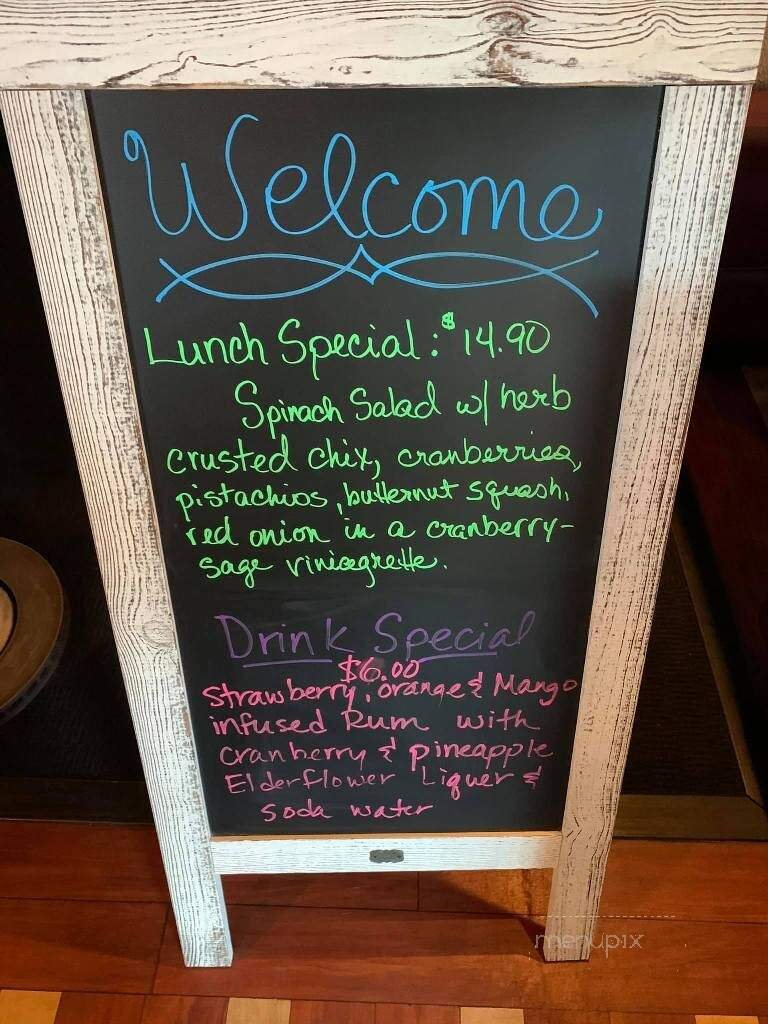 Welcome
Lunch Special: $14.90
Spinach Salad w/ herb
crusted chix, cranberries,
pistachios, butternut squash,
red onion in a cranberry-
sage viniagrette.
Drink Special
$6.00
Strawberry, orange & Mango
infused Rum with
cranberry & pineapple
Elderflower Liquer &
soda water
menupix